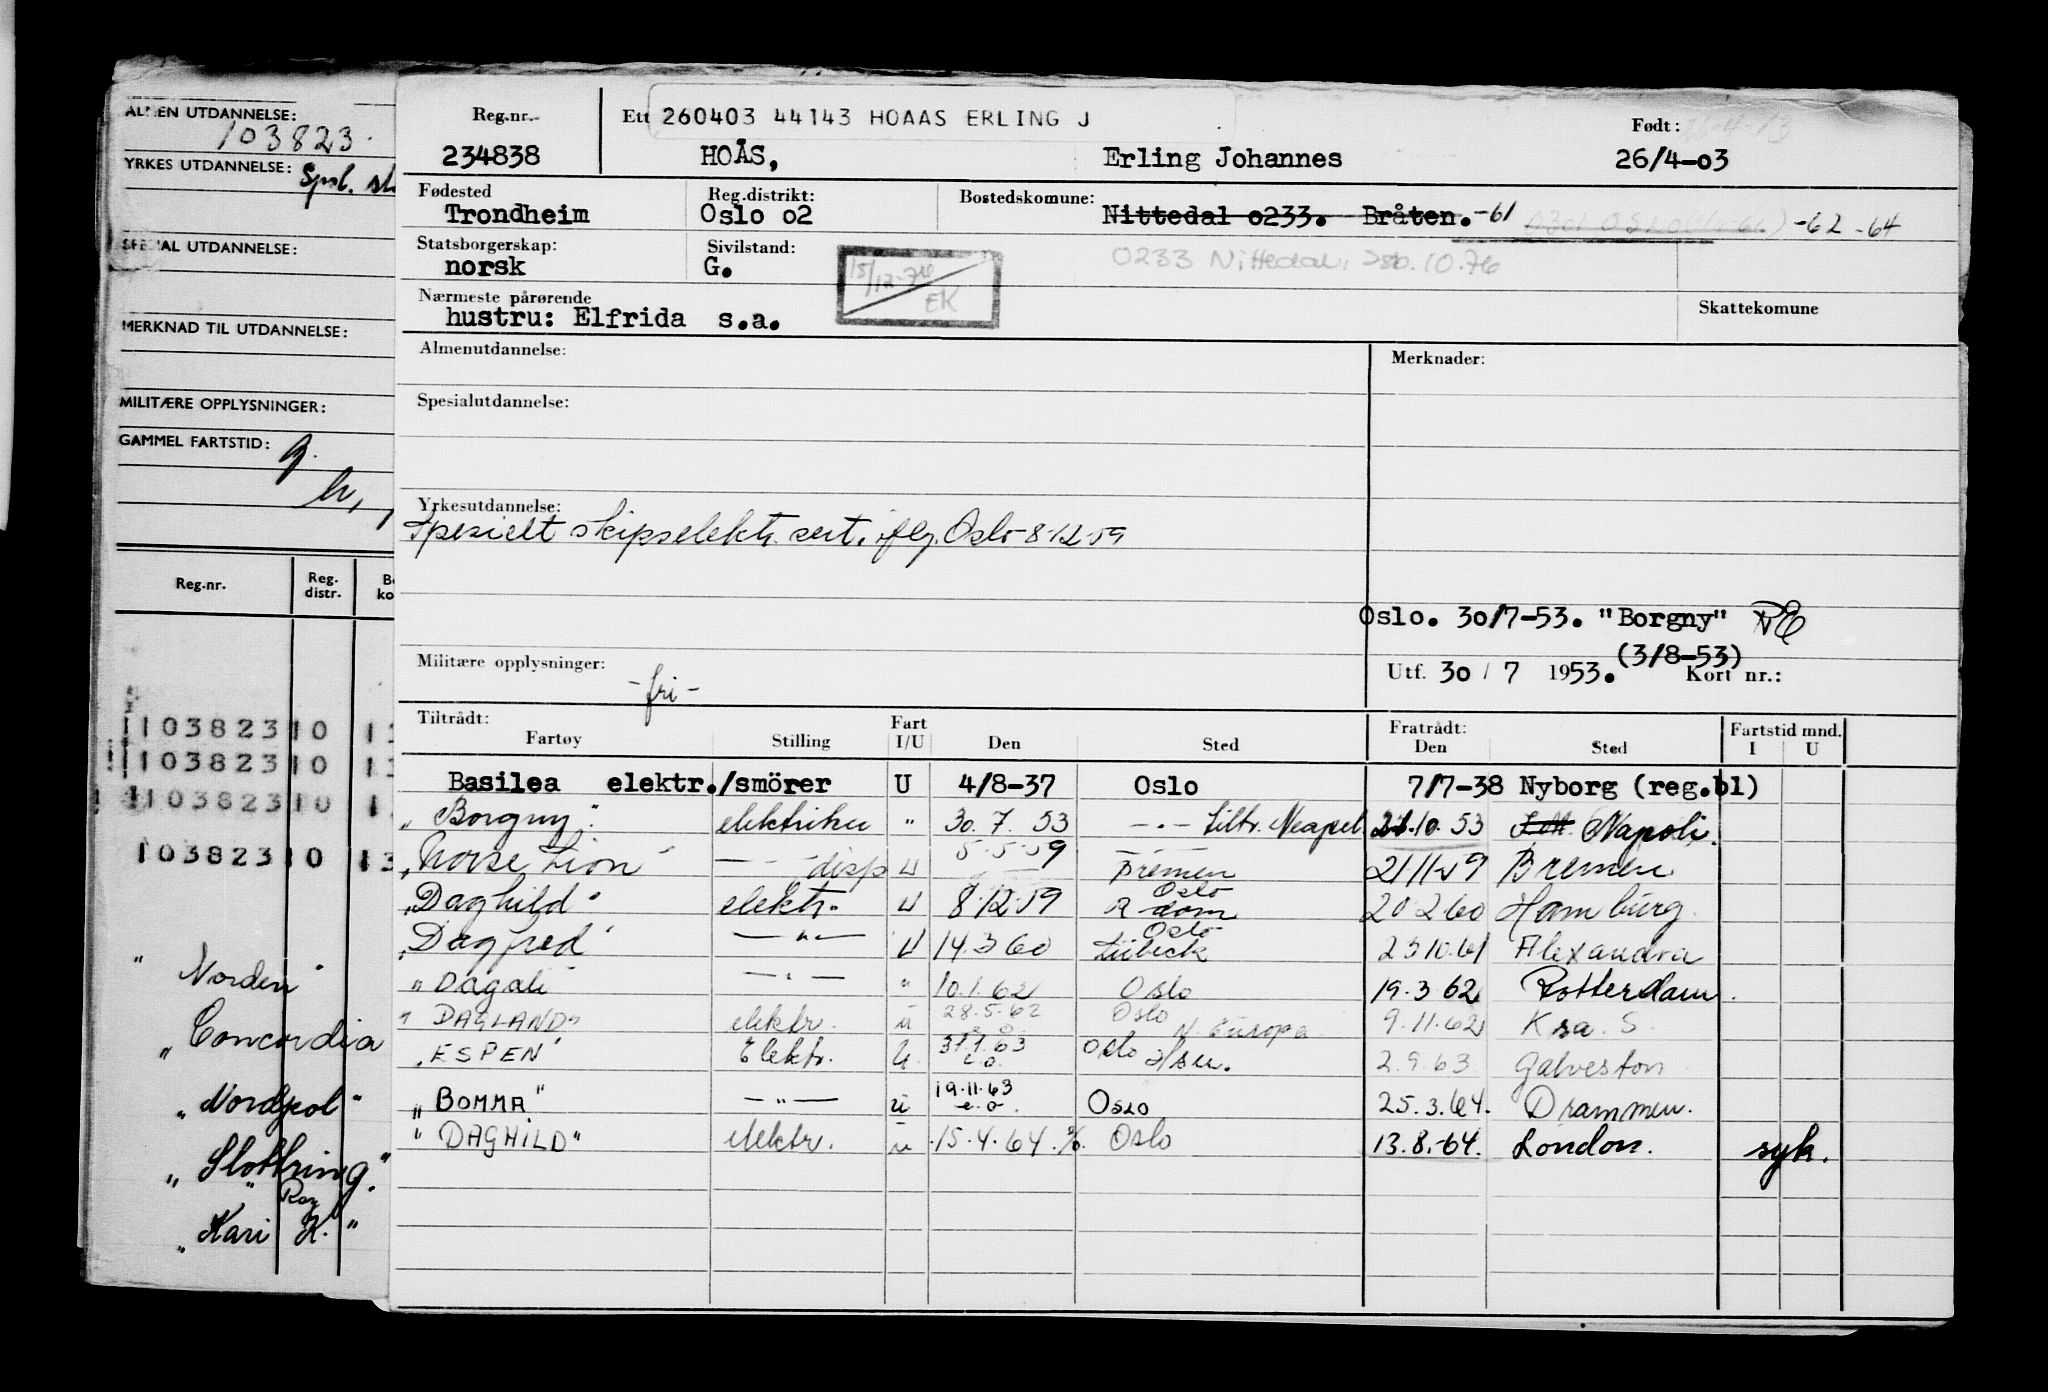 ALMEN UTDANNELSE:
103823.
YRKES UTDANNELSE: Spsl.
SPESIAL UTDANNELSE:
MERKNAD TIL UTDANNELSE:
MILITÆRE OPPLYSNINGER:
GAMMEL FARTSTID:
Reg.nr. Reg. distr.
103823 10
103823 10
103823 10
103823 10
" Norden "
" Concordia
" Nordpol "
" Slottring "
Roy
" Kari K. "
Reg.nr. Ett 260403 44143 HOAAS ERLING J Født:
234838 HOÅS, Erling Johannes 26/4-03
Fødested Reg.distrikt: Bostedskommune:
Trondheim Oslo 02 Nittedal 0233. Bråten. -61 -62 -64
Statsborgerskap: Sivilstand:
norsk G. 15/12-76 EK 0233 Nittedal, 10.76
Nærmeste pårørende Skattekomune
hustru: Elfrida s.a.
Almenutdannelse: Merknader:
Spesialutdannelse:
Yrkesutdannelse:
Spesielt skipselektr. sert. iflg. Oslo 8-12-59
Oslo. 30/7-53. "Borgny"
(3/8-53)
Militære opplysninger: -fri- Utf. 30 / 7 1953. Kort nr.:
Tiltrådt: Fart Fratrådt: Fartstid mnd.
Fartøy Stilling I/U Den Sted Den Sted I U
Basilea elektr./smörer U 4/8-37 Oslo 7/7-38 Nyborg (reg.bl)
" Borgny " elektriker " 30. 7. 53 - " - tiltr. Neapel 21.10.53 Napoli.
" Norse Lion " - " - disp U 5-5-59 Bremen 21/11-59 Bremen
" Daghild " elektr. U 8-12-59 Oslo R-dam 20-2-60 Hamburg
" Dagfred " - " - U 14.3.60 Oslo Lübeck 23.10.61 Alexandra
" Dagali " - " - " 10.1.62 Oslo 19.3.62 Rotterdam.
" DAGLAND " elektr. u 28.5.62 Oslo N. Europa 9.11.62 Ksa. S
" ESPEN " Elektr. U. e.o. Oslo 2.9.63 Galveston
" BOMMA " - " - u 19.11.63 e.o. Oslo 25.3.64. Drammen.
" DAGHILD " elektr. u 15.4.64. Oslo 13.8.-64. London. syk.